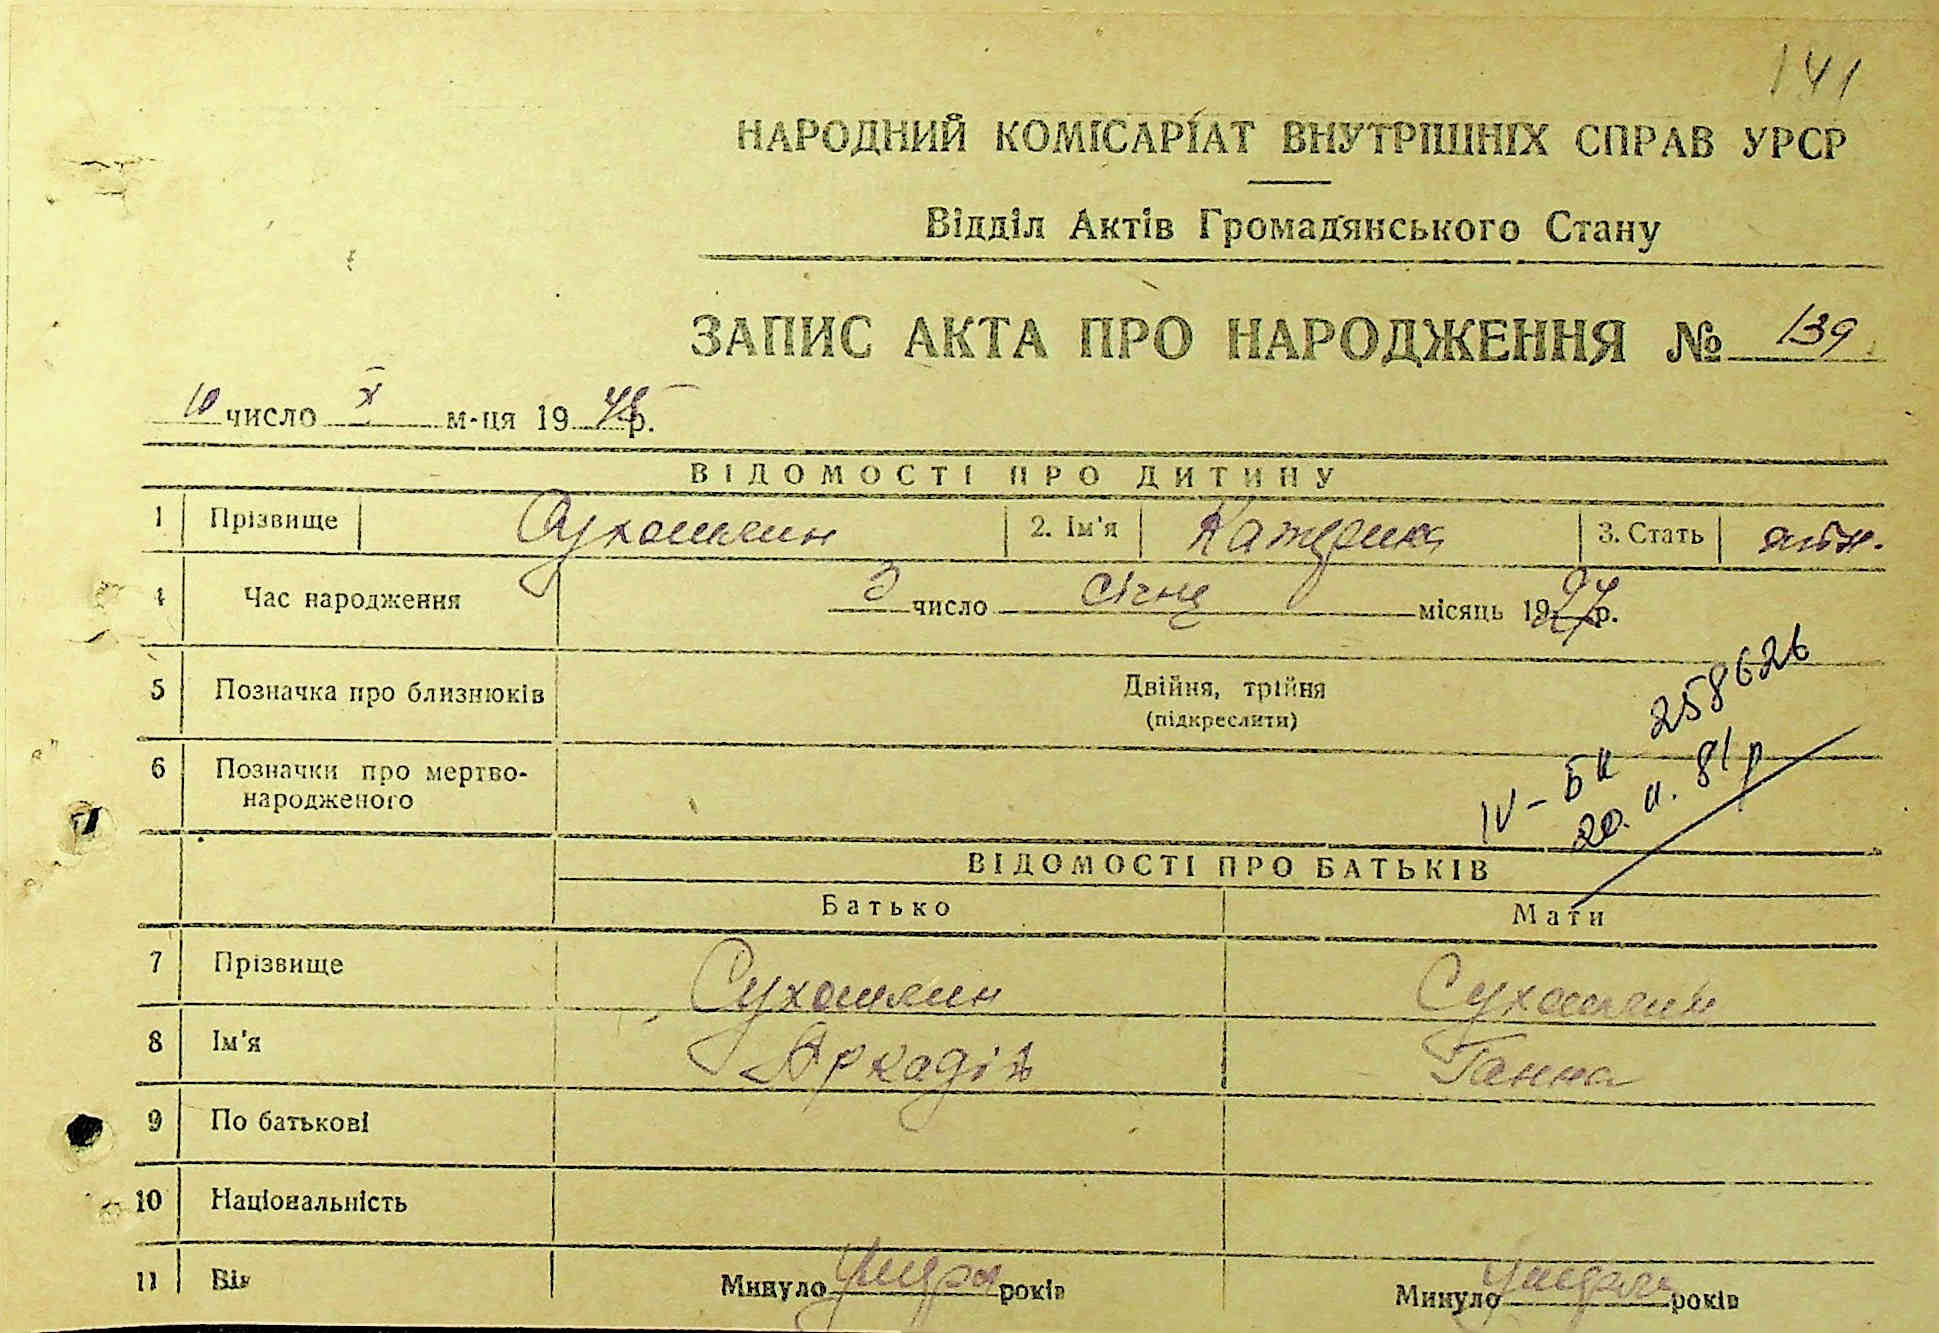 141
НАРОДНИЙ КОМІСАРІАТ ВНУТРІШНІХ СПРАВ УРСР
Відділ Актів Громадянського Стану
ЗАПИС АКТА ПРО НАРОДЖЕННЯ № 139
10 число X м-ця 1945 р.
ВІДОМОСТІ ПРО ДИТИНУ
1 Прізвище Сухошлин 2. Ім'я Катерина 3. Стать жін.
4 Час народження 5 число січня місяць 1927 р.
5 Позначка про близнюків Двійня, трійня
(підкреслити)
6 Позначки про мертво-
народженого
IV-БК 258626
20. II. 81 р
ВІДОМОСТІ ПРО БАТЬКІВ
Батько Мати
7 Прізвище Сухошлин Сухошлин
8 Ім'я Аркадій Ганна
9 По батькові
10 Національність
11 Вік Минуло років Минуло років